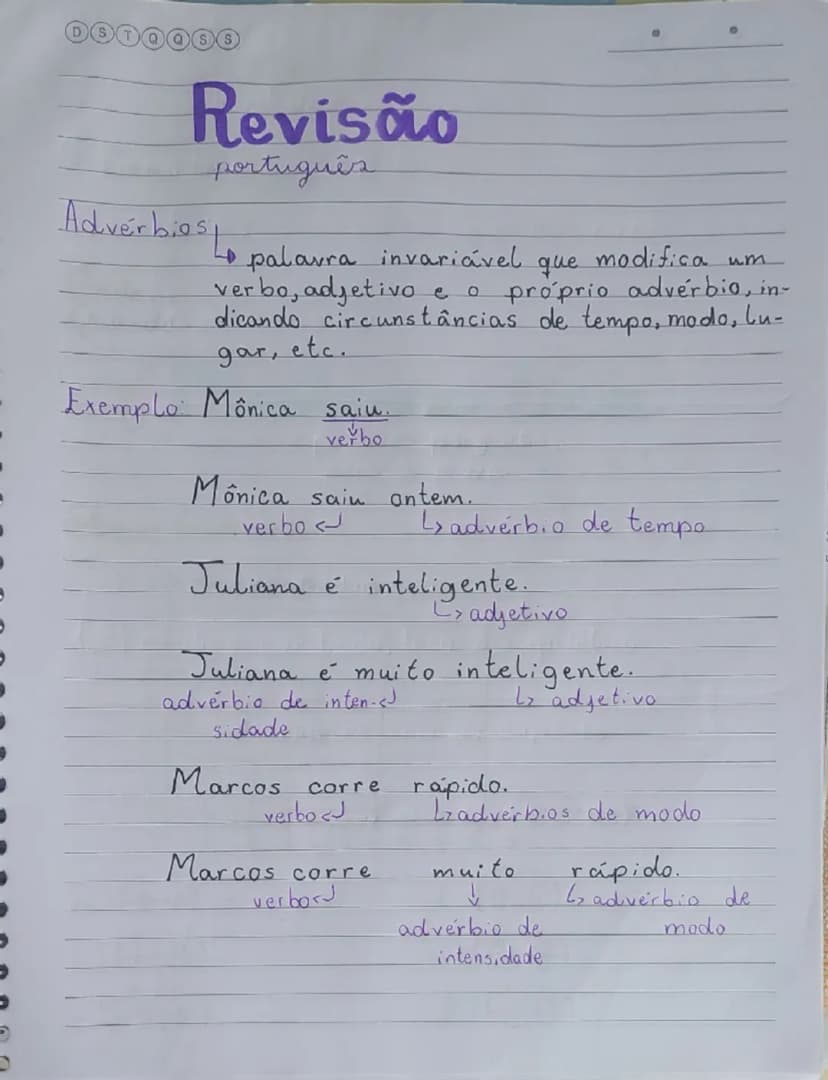 D S T Q Q S S
Revisão
português
Advérbios
↳ palavra invariável que modifica um
verbo, adjetivo e o próprio advérbio, in-
dicando circunstâncias de tempo, modo, lu-
gar, etc.
Exemplo: Mônica saiu.
verbo
Mônica saiu ontem.
verbo ↲ ↳ advérbio de tempo
Juliana é inteligente.
↳ adjetivo
Juliana é muito inteligente.
advérbio de inten- ↲ ↳ adjetivo
sidade
Marcos corre rápido.
verbo ↲ ↳ advérbios de modo
Marcos corre muito rápido.
verbo ↲ ↓ ↳ advérbio de
advérbio de modo
intensidade